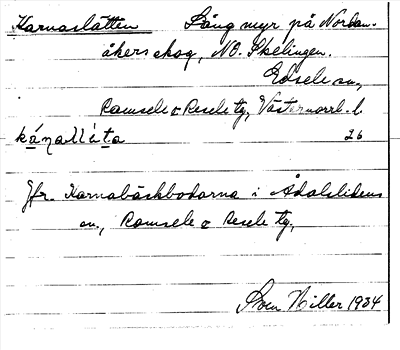 Karnaslåtten Lång myr på Nordan-
åkers skog, NO. Skelingen.
Edsele sn,
Ramsele o Resele tg, Västernorrl. l.
26
Jfr. Karnabäckbodarna i Ådalslidens
sn., Ramsele o Resele tg.
Sven Hiller 1934